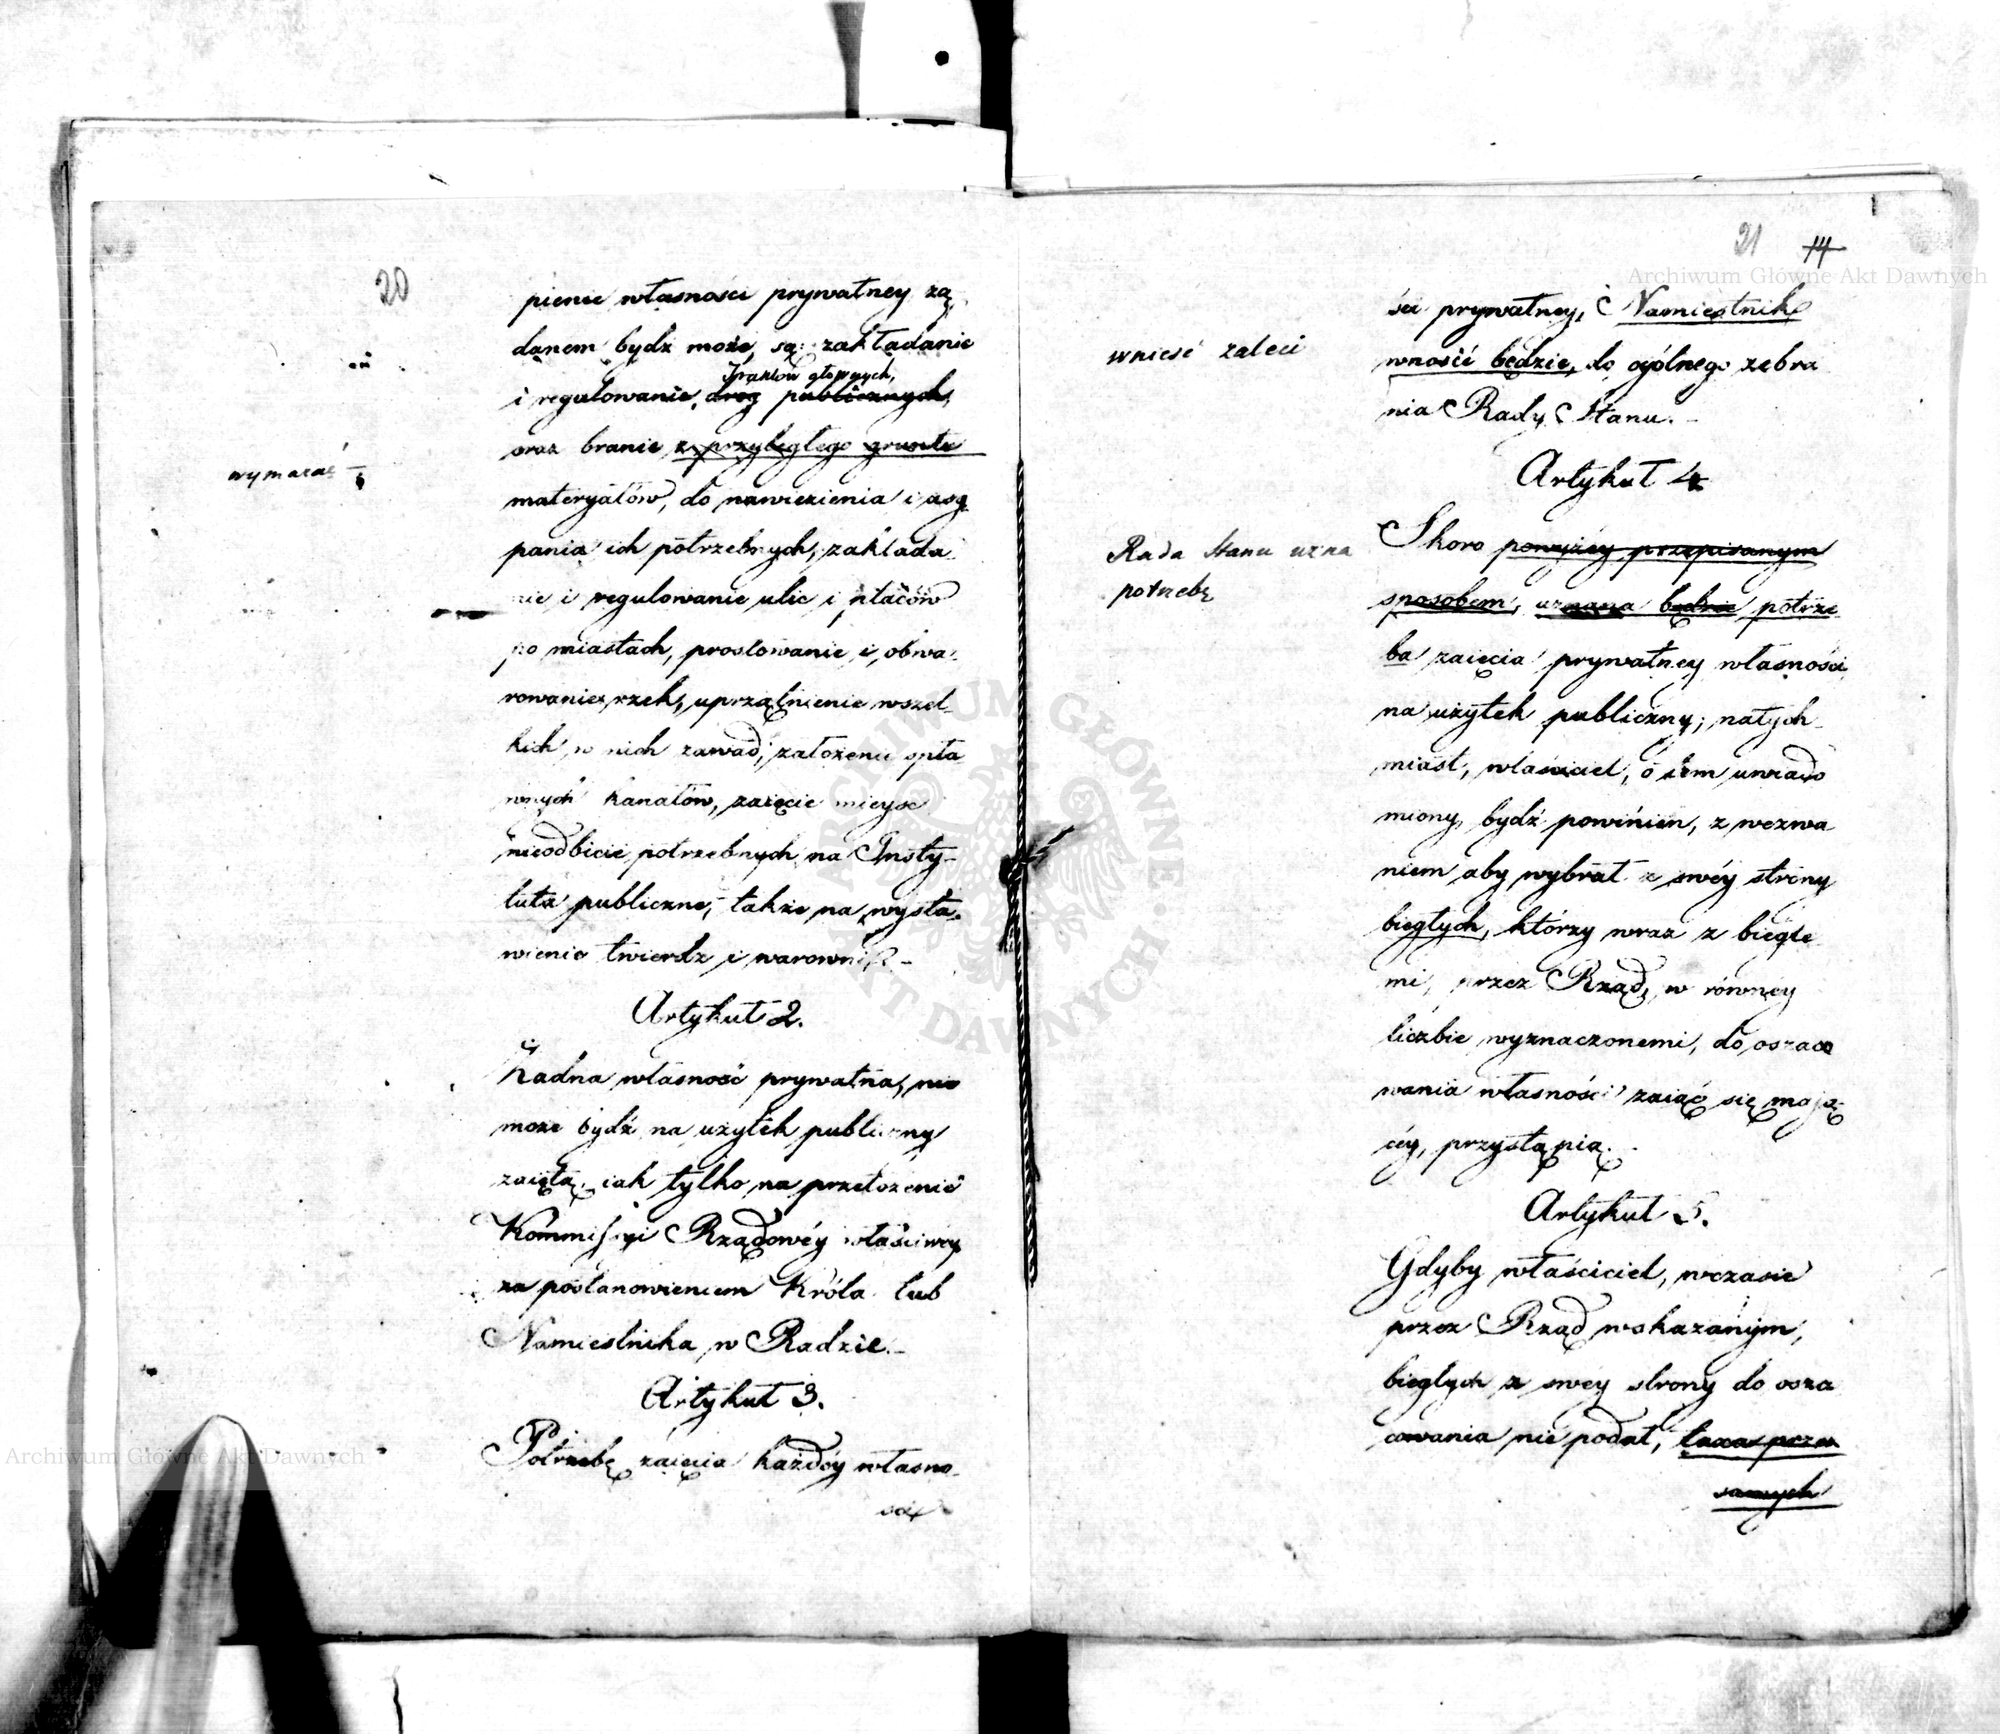 20
pienie własności prywatney żą
danem bydź może, są: zakładanie
Traktow głownych,
i regulowanie, drog publicznych,
oraz branie z przyległego gruntu
wymazać
materyałów, do nawiezienia i usy
pania ich potrzebnych, zakłada
nie i regulowanie ulic i placów
po miastach, prostowanie i obwa
rowanie rzek, uprzątnienie wszel
kich w nich zawad, założenie spła
wnych kanałów, zaięcie mieysc
nieodbicie potrzebnych na Insty
tuta publiczne, także na wysta
wienie twierdz i warowni. –
Artykuł 2.
Żadna własność prywatna, nie
może bydź na użytek publiczny
zaiętą, iak tylko na przełożenie
Kommissyi Rządowéy właściwey
za postanowieniem Króla lub
Namiestnika w Radzie. –
Artykuł 3.
Potrzebę zaięcia każdéy własno
ści
21 14
ści prywatney, Namiestnik
wnosić będzie, do ogólnego zebra
wnieść zaleci
nia Rady Stanu. –
Artykuł 4
Skoro powyżéy przepisanym
Rada Stanu uzna
potrzebę
sposobem, uznana będzie potrze
ba zaięcia prywatney własności
na użytek publiczny, natych
miast, właściciel, o tém uwiado
miony bydź powinien, z wezwa
niem aby wybrał z swéy strony
biegłych, którzy wraz z biegłe
mi, przez Rząd, w równéy
liczbie wyznaczonemi, do oszaco
wania własności zaiąć się maią
céy, przystąpią. –
Artykuł 5.
Gdyby właściciel, wczasie
przez Rząd wskazanym,
biegłych z swéy strony do osza
cowania nie podał, taxa przez
samych
Archiwum Główne Akt Dawnych
Archiwum Główne Akt Dawnych
ARCHIWUM GŁÓWNE AKT DAWNYCH